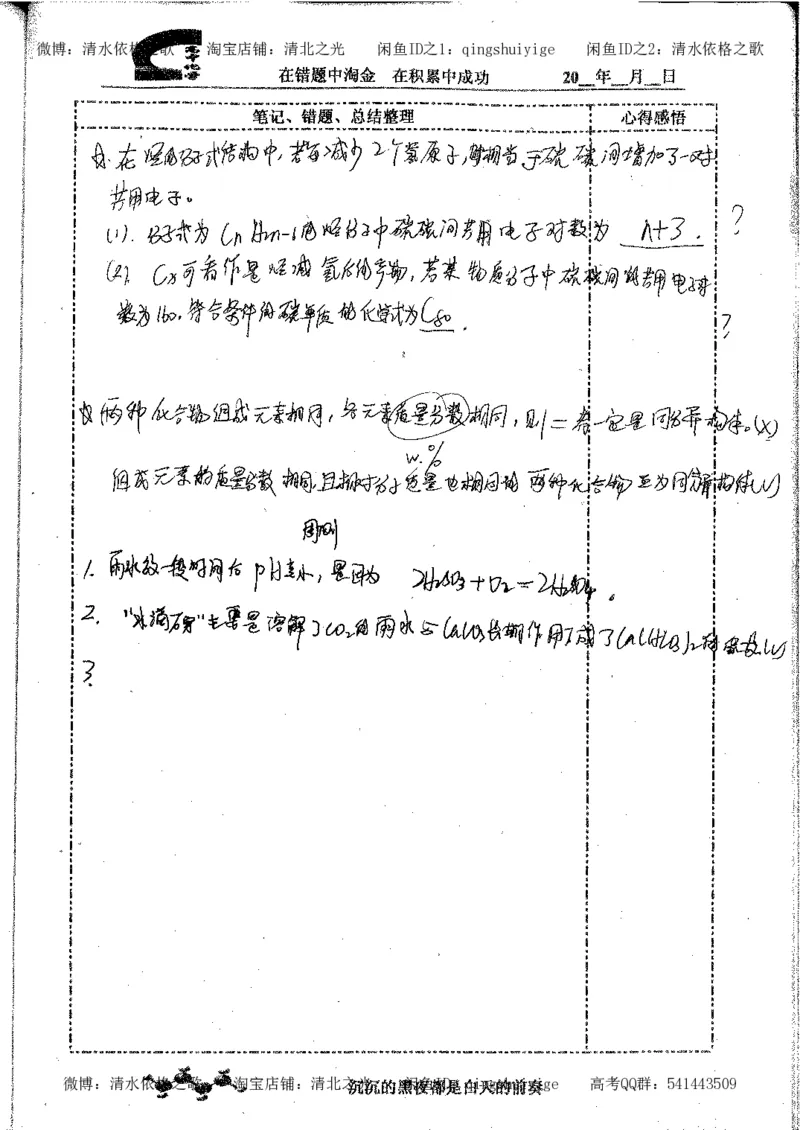 微博：清水依格之歌 淘宝店铺：清北之光 闲鱼ID之1：qingshuiyige 闲鱼ID之2：清水依格之歌
高中化学
在错题中淘金 在积累中成功 20__年__月__日
笔记、错题、总结整理 心得感悟
在烃的分子式结构中，若每减少2个氢原子，则相当于碳碳间增加了一对
共用电子。
(1). 分子式为CnH2n-6的烃分子中碳碳间共用电子对数为 n+3. ?
(2). Cx可看作是烃减氢后的产物，若某物质分子中碳碳间的共用电子对
数为160，符合条件的碳单质的化学式为C80. ?
两种化合物组成元素相同，各元素质量分数相同，则二者一定是同分异构体。(×)
w.%
组成元素的质量分数相同，且相对分子质量也相同的两种化合物互为同分异构体(√)
周测
1. 雨水放一段时间后pH变小，是因为 2H2SO3+O2=2H2SO4。
2. "水滴石穿"主要是溶解了CO2的雨水与CaCO3长期作用生成了Ca(HCO3)2的缘故.(√)
3.
微博：清水依格之歌 淘宝店铺：清北之光 闲鱼ID：qingshuiyige 高考QQ群：541443509
沉沉的黑夜都是白天的前奏